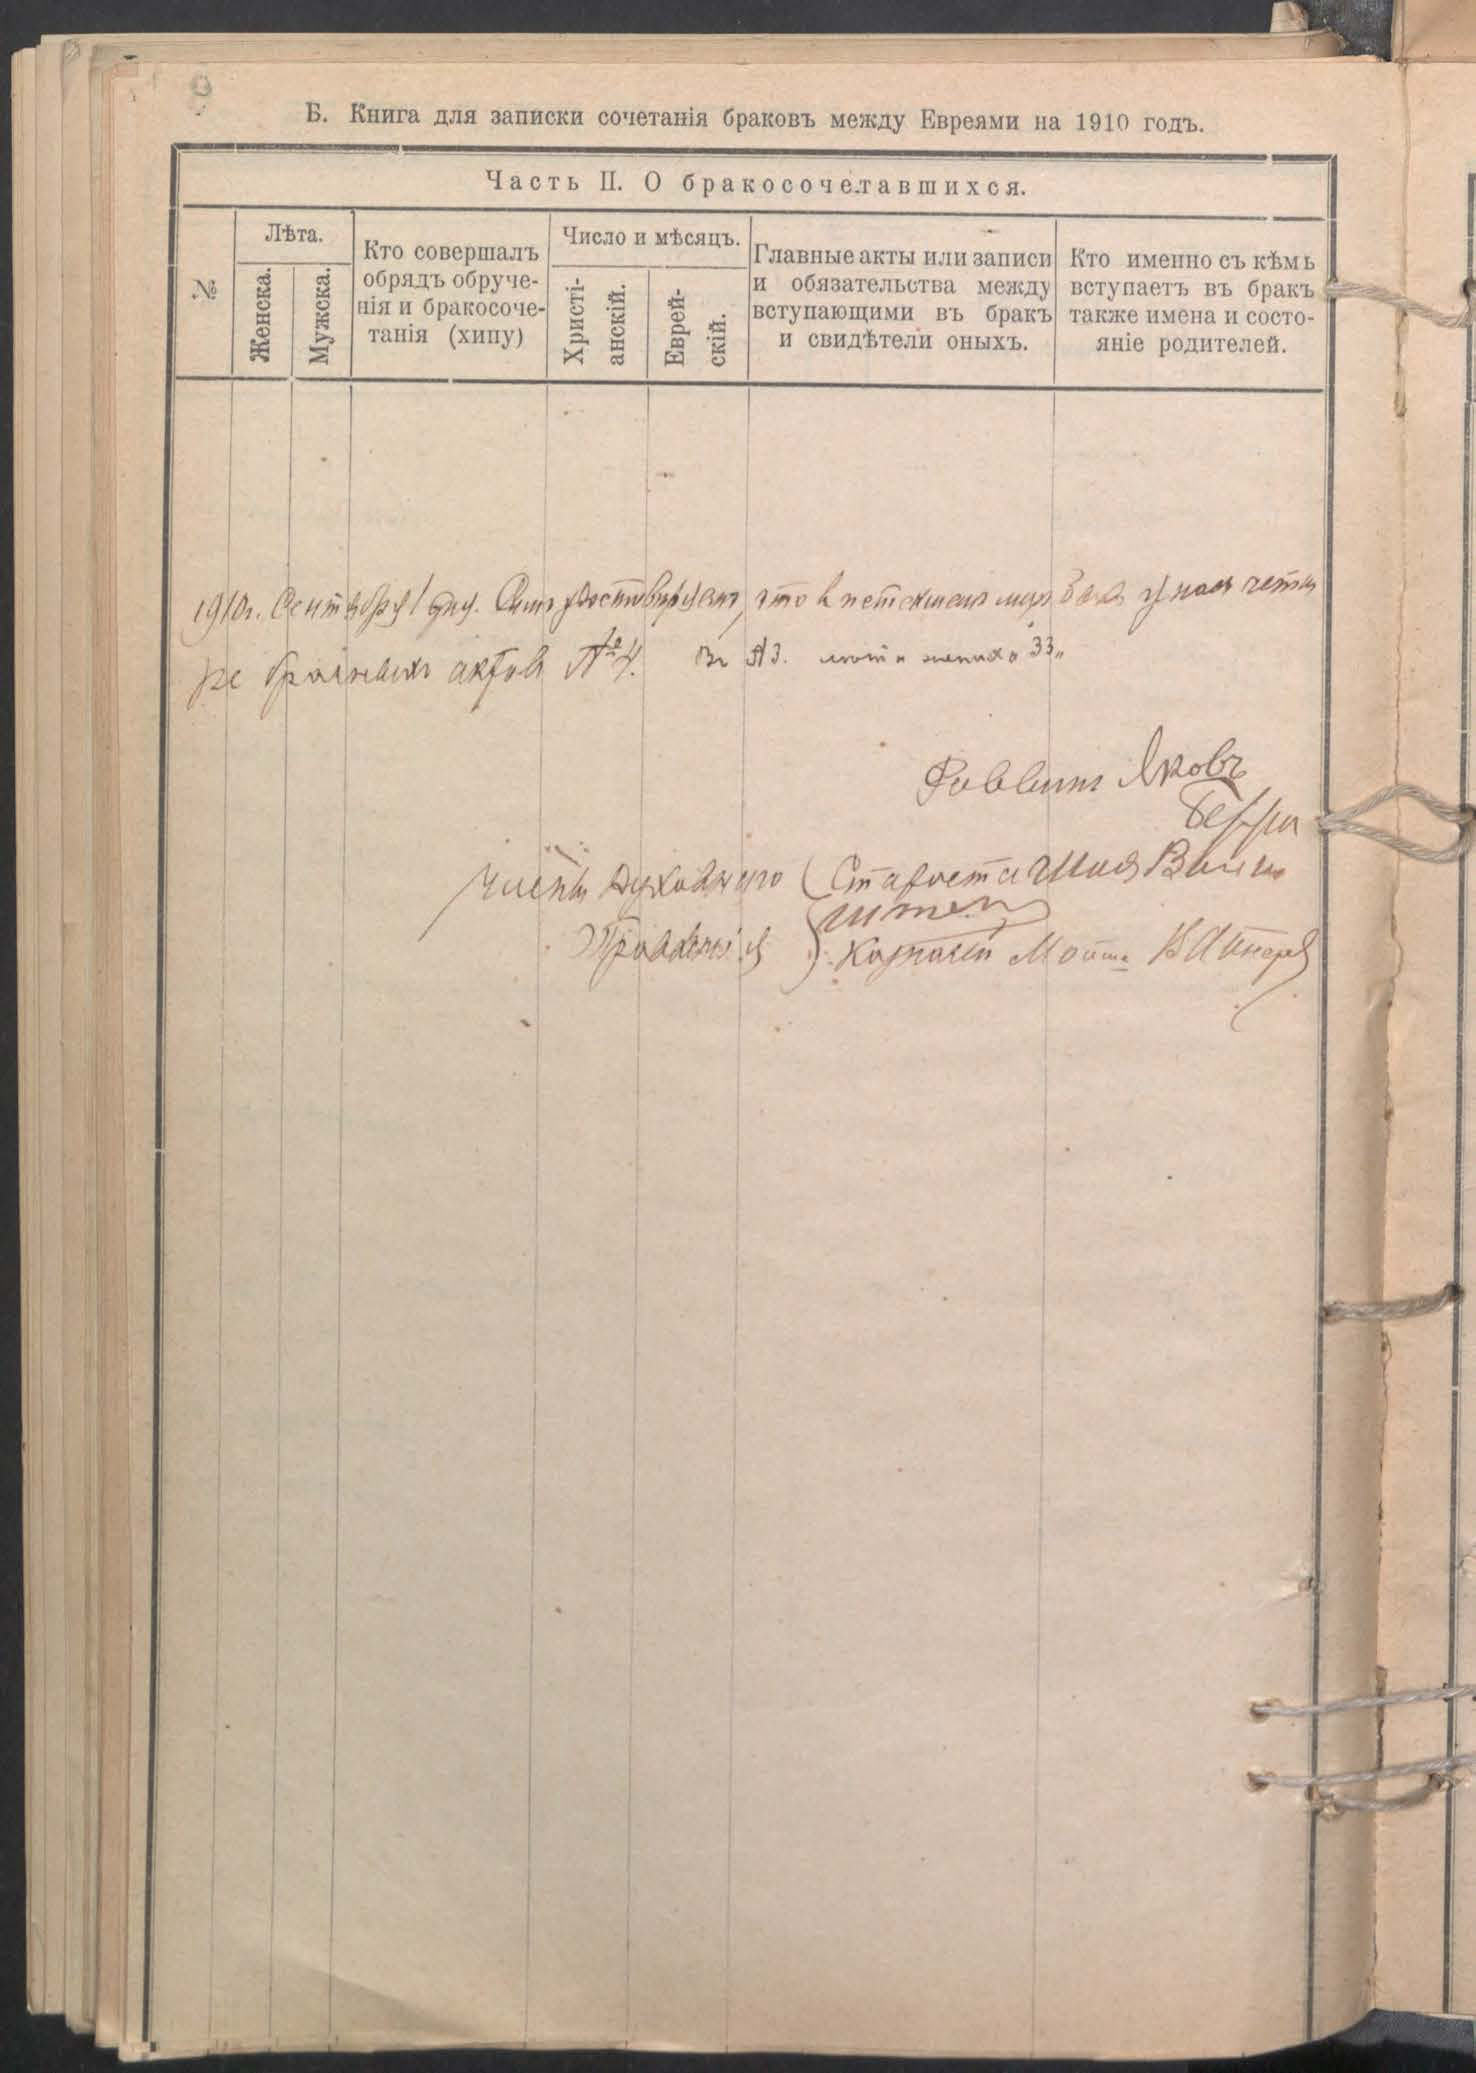 Б. Книга для записки сочетанія браковъ между Евреями на 1910 годъ.
Часть II. О бракосочетавшихся.
№
Лѣта.
Женска.
Мужска.
Кто совершалъ
обрядъ обруче-
нія и бракосоче-
танія (хипу)
Число и мѣсяцъ.
Христі-
анскій.
Еврей-
скій.
Главные акты или записи
и обязательства между
вступающими въ бракъ
и свидѣтели оныхъ.
Кто именно съ кѣмъ
вступаетъ въ бракъ
также имена и состо-
яніе родителей.
1910г. Сентября 1 дня. Симъ удостовѣряемъ, что в истекшемъ четы
ре брачныхъ актовъ №4. Въ №3. лѣта жениха "33"
Раввинъ Яковъ
Члены Духовнаго Староста
Правленія Казначей